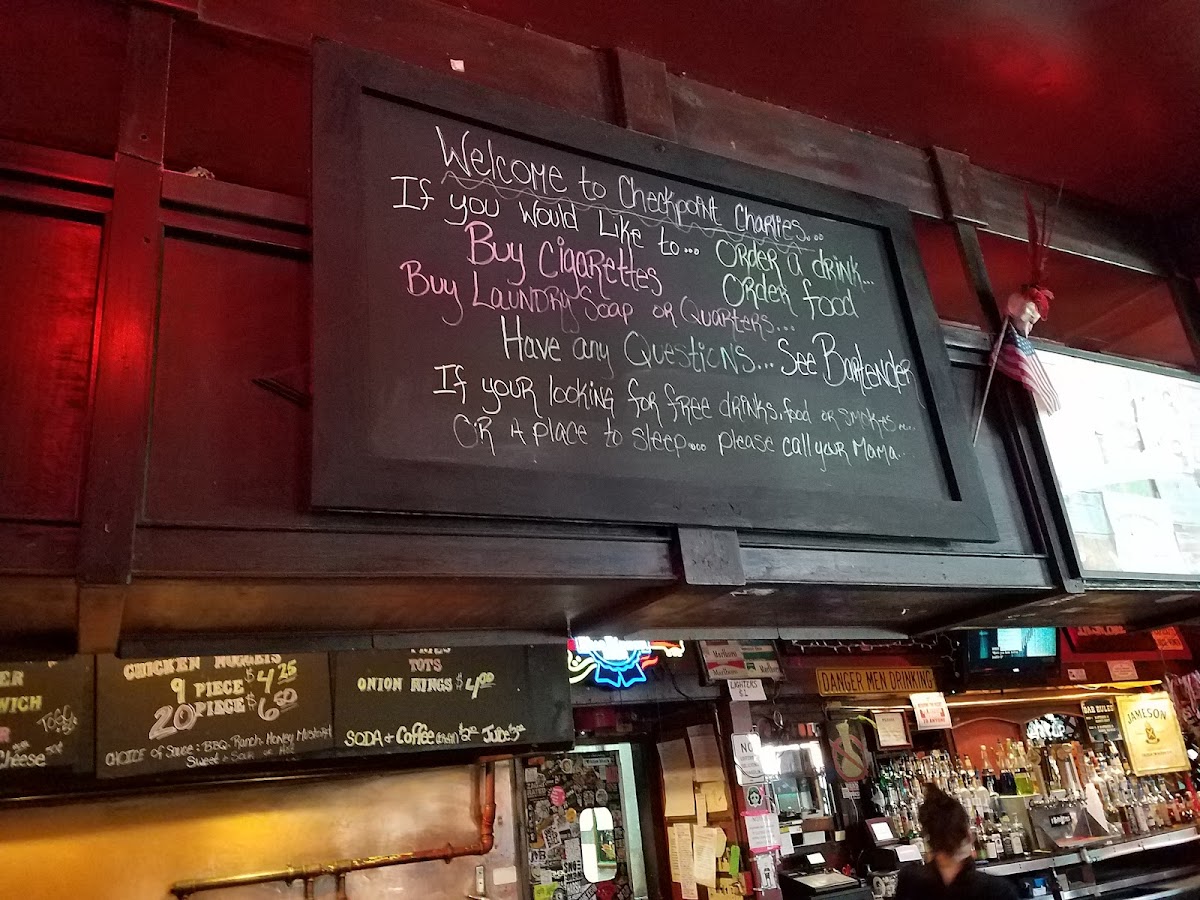 Welcome to Checkpoint Charlies...
If you would Like to... Order a drink...
Buy Cigarettes Order food
Buy Laundry Soap or Quarters...
Have any Questions... See Bartender
If your looking for free drinks, food or smokes...
OR A place to sleep... please call your Mama..
WICH
Cheese
CHICKEN NUGGETS
9 PIECE $4.25
20 PIECE $6.50
CHOICE of Sauce: BBQ. Ranch. Honey Mustard.
TOTS
ONION RINGS $4.00
SODA + Coffee
Marlboro
LIGHTERS
$1
DANGER MEN DRINKING
NO
BAR RULES
JAMESON